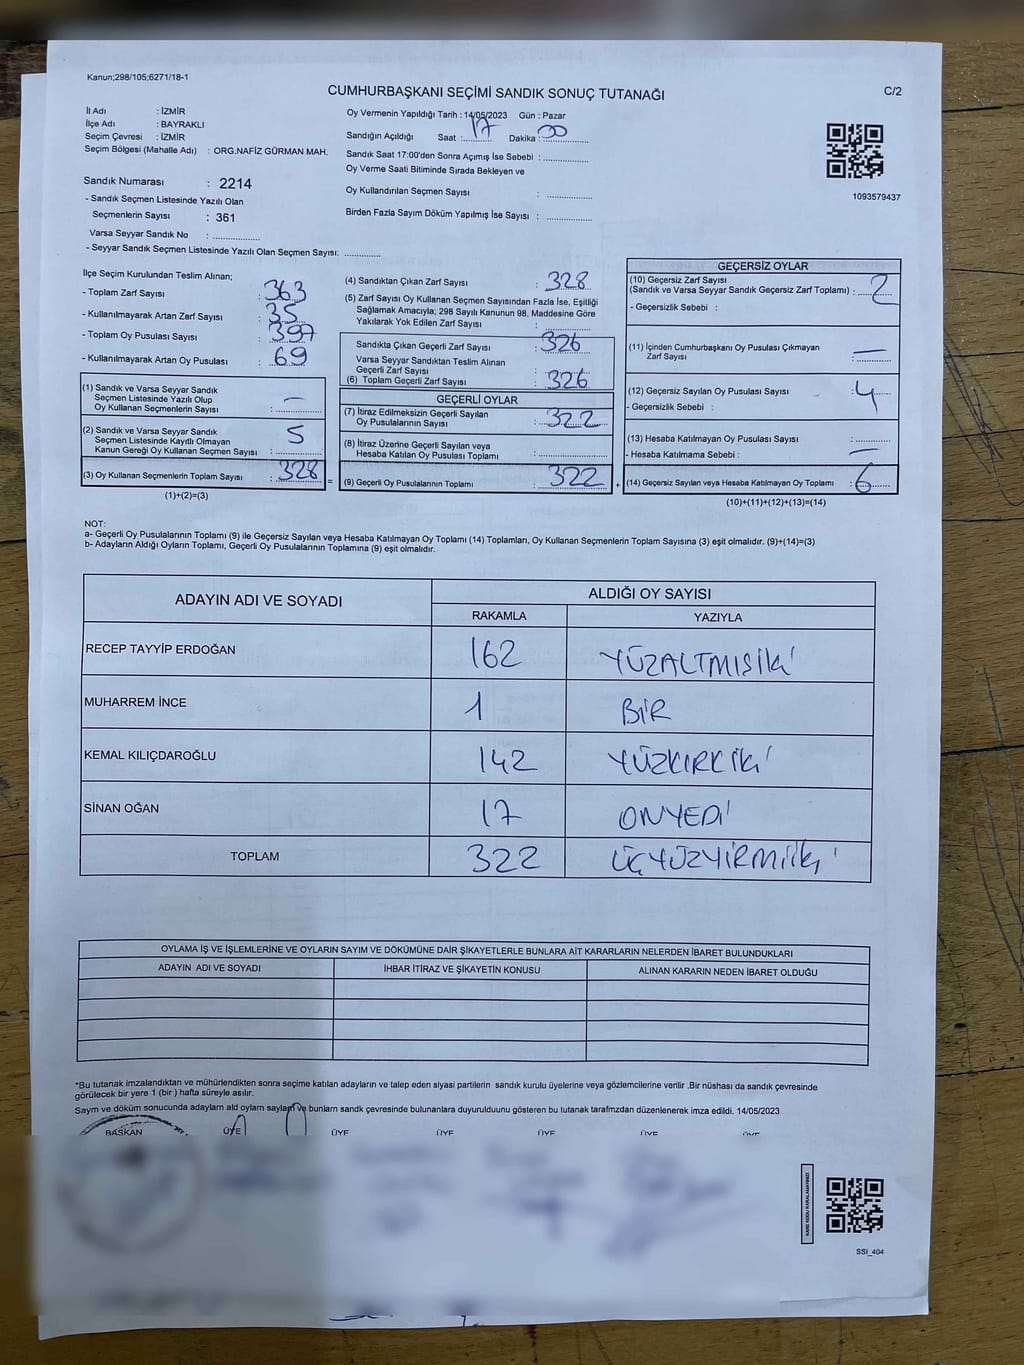 Kanun;298/105;6271/18-1
CUMHURBAŞKANI SEÇİMİ SANDIK SONUÇ TUTANAĞI
C/2
İl Adı : İZMİR
İlçe Adı : BAYRAKLI
Seçim Çevresi : İZMİR
Seçim Bölgesi (Mahalle Adı) : ORG.NAFİZ GÜRMAN MAH.
Oy Vermenin Yapıldığı Tarih : 14/05/2023 Gün : Pazar
Sandığın Açıldığı Saat : 17 Dakika : 00
Sandık Saat 17:00'den Sonra Açımış İse Sebebi :
Oy Verme Saati Bitiminde Sırada Bekleyen ve
Oy Kullandırılan Seçmen Sayısı :
Birden Fazla Sayım Döküm Yapılmış İse Sayısı :
1093579437
Sandık Numarası : 2214
- Sandık Seçmen Listesinde Yazılı Olan
Seçmenlerin Sayısı : 361
Varsa Seyyar Sandık No :
- Seyyar Sandık Seçmen Listesinde Yazılı Olan Seçmen Sayısı:
İlçe Seçim Kurulundan Teslim Alınan;
- Toplam Zarf Sayısı : 363
- Kullanılmayarak Artan Zarf Sayısı : 35
- Toplam Oy Pusulası Sayısı : 397
- Kullanılmayarak Artan Oy Pusulası : 69
(1) Sandık ve Varsa Seyyar Sandık
Seçmen Listesinde Yazılı Olup
Oy Kullanan Seçmenlerin Sayısı : —
(2) Sandık ve Varsa Seyyar Sandık
Seçmen Listesinde Kayıtlı Olmayan
Kanun Gereği Oy Kullanan Seçmen Sayısı : 5
(3) Oy Kullanan Seçmenlerin Toplam Sayısı : 328
(1)+(2)=(3)
(4) Sandıktan Çıkan Zarf Sayısı : 328
(5) Zarf Sayısı Oy Kullanan Seçmen Sayısından Fazla İse, Eşitliği
Sağlamak Amacıyla; 298 Sayılı Kanunun 98. Maddesine Göre
Yakılarak Yok Edilen Zarf Sayısı :
Sandıkta Çıkan Geçerli Zarf Sayısı : 326
Varsa Seyyar Sandıktan Teslim Alınan
Geçerli Zarf Sayısı :
(6) Toplam Geçerli Zarf Sayısı : 326
GEÇERLİ OYLAR
(7) İtiraz Edilmeksizin Geçerli Sayılan
Oy Pusulalarının Sayısı : 322
(8) İtiraz Üzerine Geçerli Sayılan veya
Hesaba Katılan Oy Pusulası Toplamı :
= (9) Geçerli Oy Pusulalarının Toplamı : 322 +
GEÇERSİZ OYLAR
(10) Geçersiz Zarf Sayısı
(Sandık ve Varsa Seyyar Sandık Geçersiz Zarf Toplamı) : 2
- Geçersizlik Sebebi :
(11) İçinden Cumhurbaşkanı Oy Pusulası Çıkmayan
Zarf Sayısı : —
(12) Geçersiz Sayılan Oy Pusulası Sayısı : 4
- Geçersizlik Sebebi :
(13) Hesaba Katılmayan Oy Pusulası Sayısı :
- Hesaba Katılmama Sebebi : —
(14) Geçersiz Sayılan veya Hesaba Katılmayan Oy Toplamı : 6
(10)+(11)+(12)+(13)=(14)
NOT:
a- Geçerli Oy Pusulalarının Toplamı (9) ile Geçersiz Sayılan veya Hesaba Katılmayan Oy Toplamı (14) Toplamları, Oy Kullanan Seçmenlerin Toplam Sayısına (3) eşit olmalıdır. (9)+(14)=(3)
b- Adayların Aldığı Oyların Toplamı, Geçerli Oy Pusulalarının Toplamına (9) eşit olmalıdır.
ADAYIN ADI VE SOYADI ALDIĞI OY SAYISI
RAKAMLA YAZIYLA
RECEP TAYYİP ERDOĞAN 162 YÜZALTMISİKİ
MUHARREM İNCE 1 BİR
KEMAL KILIÇDAROĞLU 142 YÜZKIRKİKİ
SİNAN OĞAN 17 ONYEDİ
TOPLAM 322 ÜÇYÜZYİRMİİKİ
OYLAMA İŞ VE İŞLEMLERİNE VE OYLARIN SAYIM VE DÖKÜMÜNE DAİR ŞİKAYETLERLE BUNLARA AİT KARARLARIN NELERDEN İBARET BULUNDUKLARI
ADAYIN ADI VE SOYADI İHBAR İTİRAZ VE ŞİKAYETİN KONUSU ALINAN KARARIN NEDEN İBARET OLDUĞU
*Bu tutanak imzalandıktan ve mühürlendikten sonra seçime katılan adayların ve talep eden siyasi partilerin sandık kurulu üyelerine veya gözlemcilerine verilir .Bir nüshası da sandık çevresinde
görülecek bir yere 1 (bir ) hafta süreyle asılır.
Sayım ve döküm sonucunda adayların ald oyların saylam ve bunlarn sandk çevresinde bulunanlara duyurulduunu gösteren bu tutanak tarafmzdan düzenlenerek imza edildi. 14/05/2023
BAŞKAN ÜYE ÜYE ÜYE ÜYE ÜYE ÜYE
SSI_404